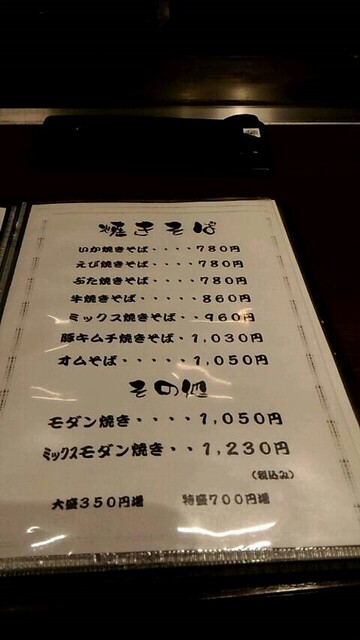 焼きそば
いか焼きそば・・・・780円
えび焼きそば・・・・780円
ぶた焼きそば・・・・780円
牛焼きそば・・・・・860円
ミックス焼きそば・・960円
豚キムチ焼きそば・1,030円
オムそば・・・・・1,050円
その他
モダン焼き・・・・1,050円
ミックスモダン焼き・・1,230円
(税込み)
大盛350円増 特盛700円増